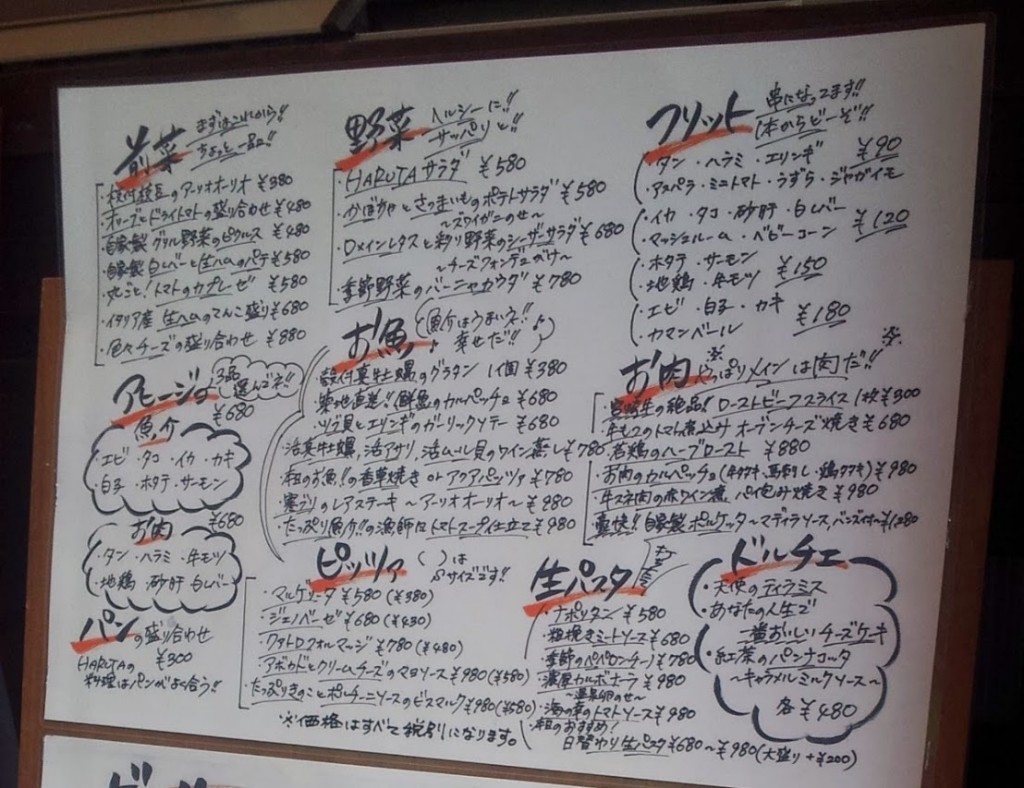 前菜 まずはこれから!!
ちょっと一品!!
・枝付枝豆のアーリオオーリオ ¥380
・オリーブとドライトマトの盛り合わせ ¥480
・自家製 グリル野菜のピクルス ¥480
・自家製 白レバーと生ハムのパテ ¥580
・丸ごと!トマトのカプレーゼ ¥580
・イタリア産 生ハムのてんこ盛り ¥680
・色々チーズの盛り合わせ ¥880
野菜 ヘルシーに!!
サッパリと!!
・HARUTAサラダ ¥580
・かぼちゃとさつまいものポテトサラダ ¥580
~ズワイガニのせ~
・ロメインレタスと彩り野菜のシーザーサラダ ¥680
~チーズフォンデュがけ~
・季節野菜のバーニャカウダ ¥780
フリット 串になってます!!
1本からどーぞ!!
タン・ハラミ・エリンギ ¥90
アスパラ・ミニトマト・うずら・ジャガイモ
イカ・タコ・砂肝・白レバー ¥120
マッシュルーム・ベビーコーン
ホタテ・サーモン ¥150
地鶏・牛モツ
エビ・白子・カキ ¥180
カマンベール
アヒージョ 3品選んでネ!!
¥680
魚介
エビ・タコ・イカ・カキ
白子・ホタテ・サーモン
お肉 ¥680
・タン・ハラミ・牛モツ
・地鶏・砂肝・白レバー
パンの盛り合わせ
¥300
HARUTAの
料理はパンがよく合う!!
お魚 魚介はうまいネ!!
幸せだ!! ♪
・殻付真牡蠣のグラタン 1個 ¥380
・築地直送!!鮮魚のカルパッチョ ¥680
・ツブ貝とエリンギのガーリックソテー ¥680
・活真牡蠣、活アサリ、活ムール貝のワイン蒸し ¥780
・旬のお魚!!の香草焼き or アクアパッツァ ¥780
・寒ブリのレアステーキ ~アーリオオーリオ~ ¥980
・たっぷり魚介!!の漁師風トマトスープ仕立て ¥980
お肉 やっぱりメインは肉だ!!
・宮崎牛の絶品!!ローストビーフスライス 1枚 ¥300
・牛モツのトマト煮込み オーブンチーズ焼き ¥680
・若鶏のハーブロースト ¥880
・お肉のカルパッチョ(牛タタキ、馬刺し、鶏タタキ) ¥980
・牛スネ肉の赤ワイン煮 パイ包み焼き ¥980
・豪快!!自家製 ポルケッタ ~マディラソース、バンズ付~ ¥1280
ピッツァ ( )は
Sサイズです!!
・マルゲリータ ¥580 (¥380)
・ジェノベーゼ ¥680 (¥430)
・クワトロフォルマージ ¥780 (¥480)
・アボカドとクリームチーズのマヨソース ¥980 (¥580)
・たっぷりきのことポルチーニソースのビスマルク ¥980 (¥580)
※価格はすべて税別になります。
生パスタ もちもち
・ナポリタン ¥580
・粗挽きミートソース ¥680
・季節のペペロンチーノ ¥780
・濃厚カルボナーラ ¥980
~温泉卵のせ~
・海の幸のトマトソース ¥980
・旬のおすすめ!
日替わり生パスタ ¥680~¥980 (大盛り+¥200)
ドルチェ
・天使のティラミス
・あなたの人生で
一番おいしいチーズケーキ
・紅茶のパンナコッタ
~キャラメルミルクソース~
各¥480